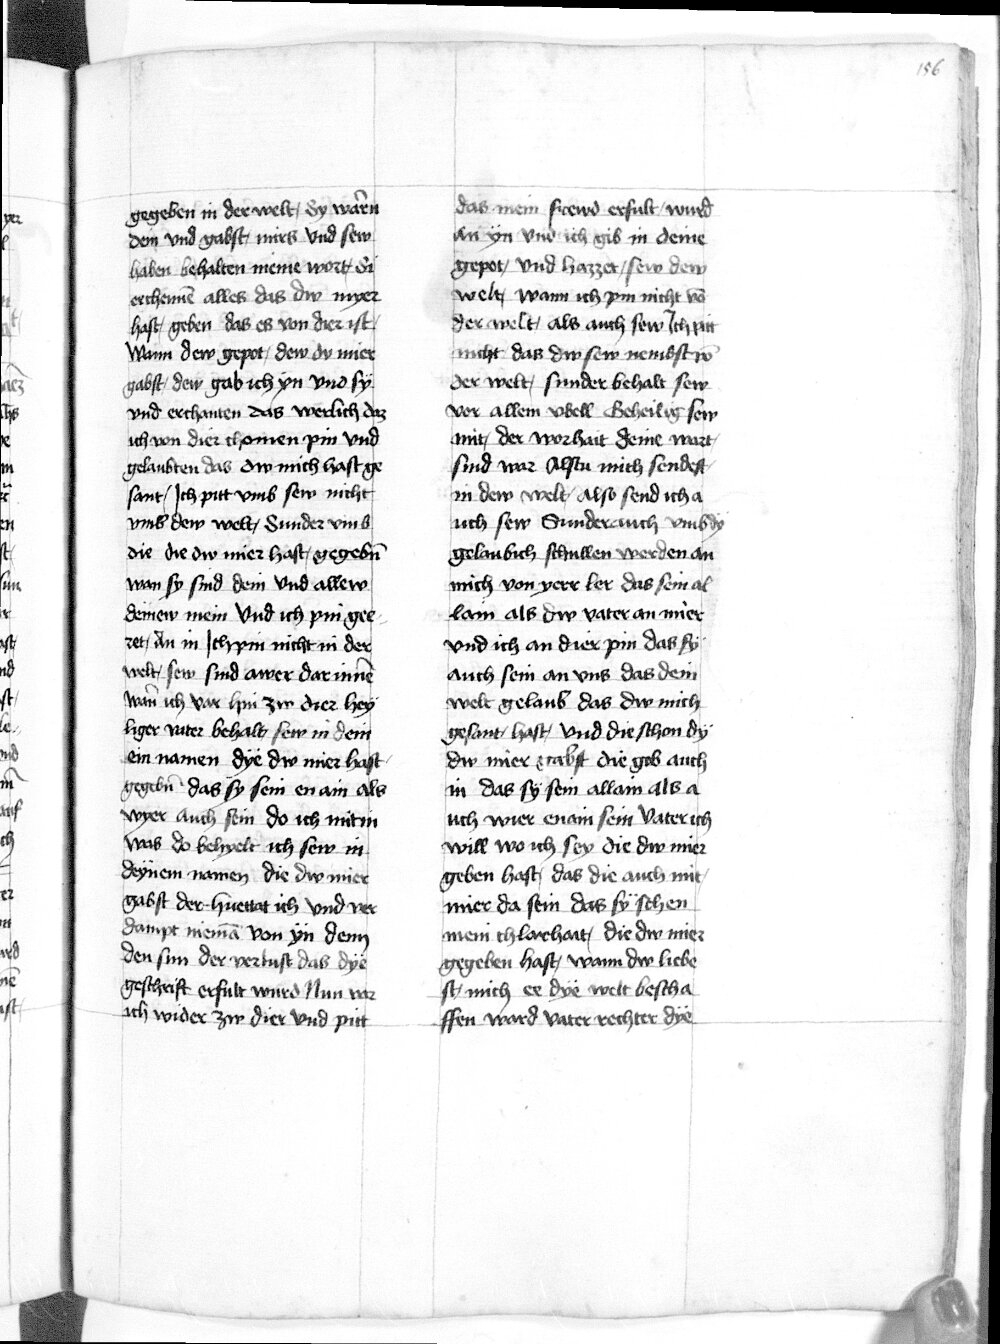 156
gegeben in der welt / Sy warñ
dein vnd gabst / mirs vnd sew
haben behalten meine wort / Si
erchennē alles das dw myer
hast / geben das es von dier ist /
Wann dew gepot / dew dv mier
gabst / dew gab ich ÿn vnd sÿ
vnd erchanten das werlich daz
ich von dier chomen pin vnd
gelaubten das dw mich hast ge
sant / Ich pitt vmb sew nicht
vmb dew welt / Sunder vmb
die die dw mier hast / gegebn̄
wan sy sind dein vnd allew
deinew mein Vnd ich pin gee-
ret / An in Ich pin nicht in der
welt / sew sind awer dar innē
wan̄ ich var hin zw dier hey
liger vater behalt / sew in dein
ein namen dÿe dw mier hast /
gegebn̄ das sy sein en ain als
wyer auch sein do ich mit in
was do behyelt ich sew in
deÿnem namen die dw mier
gabst der huettat ich vnd ver
dampt niemā von ÿn denn
den sun der verlust das dÿe
geschrift erfult wurd Nun var
ich wider zw dier vnd pitt
das mein frewd erfult / wurd
an ÿn vnd ich gib in deine
gepot / vnd hazzet / sew dew
welt / wann ich pin nicht vō
der welt / als auch sew Ich pitt
nicht das dw sew nembst vō
der welt / sunder behalt sew
vor allem vbell Geheilig sew
mit / der worhait deine wart /
sind war Alstu mich sendest /
in dew welt / Also send ich a
uch sew Sunder auch vmb dÿ
gelaubich schullen werden an
mich von yerr ler das sein al
lain als dw vater an mier
vnd ich an dier pin das sÿ
auch sein an vns das dein
welt gelaub das dw mich
gesant / hast / Vnd die schon dÿ
dw mier gabst die gob auch
in das sÿ sein allain als a
uch wier enain sein Vater ich
will wo ich sey die dw mier
geben hast / das die auch mit /
mier da sein das sÿ schen
mein chlarhait / die dw mier
gegeben hast / wann dw liebe
st / mich ee dÿe welt bescha
ffen ward vater rechter dÿe